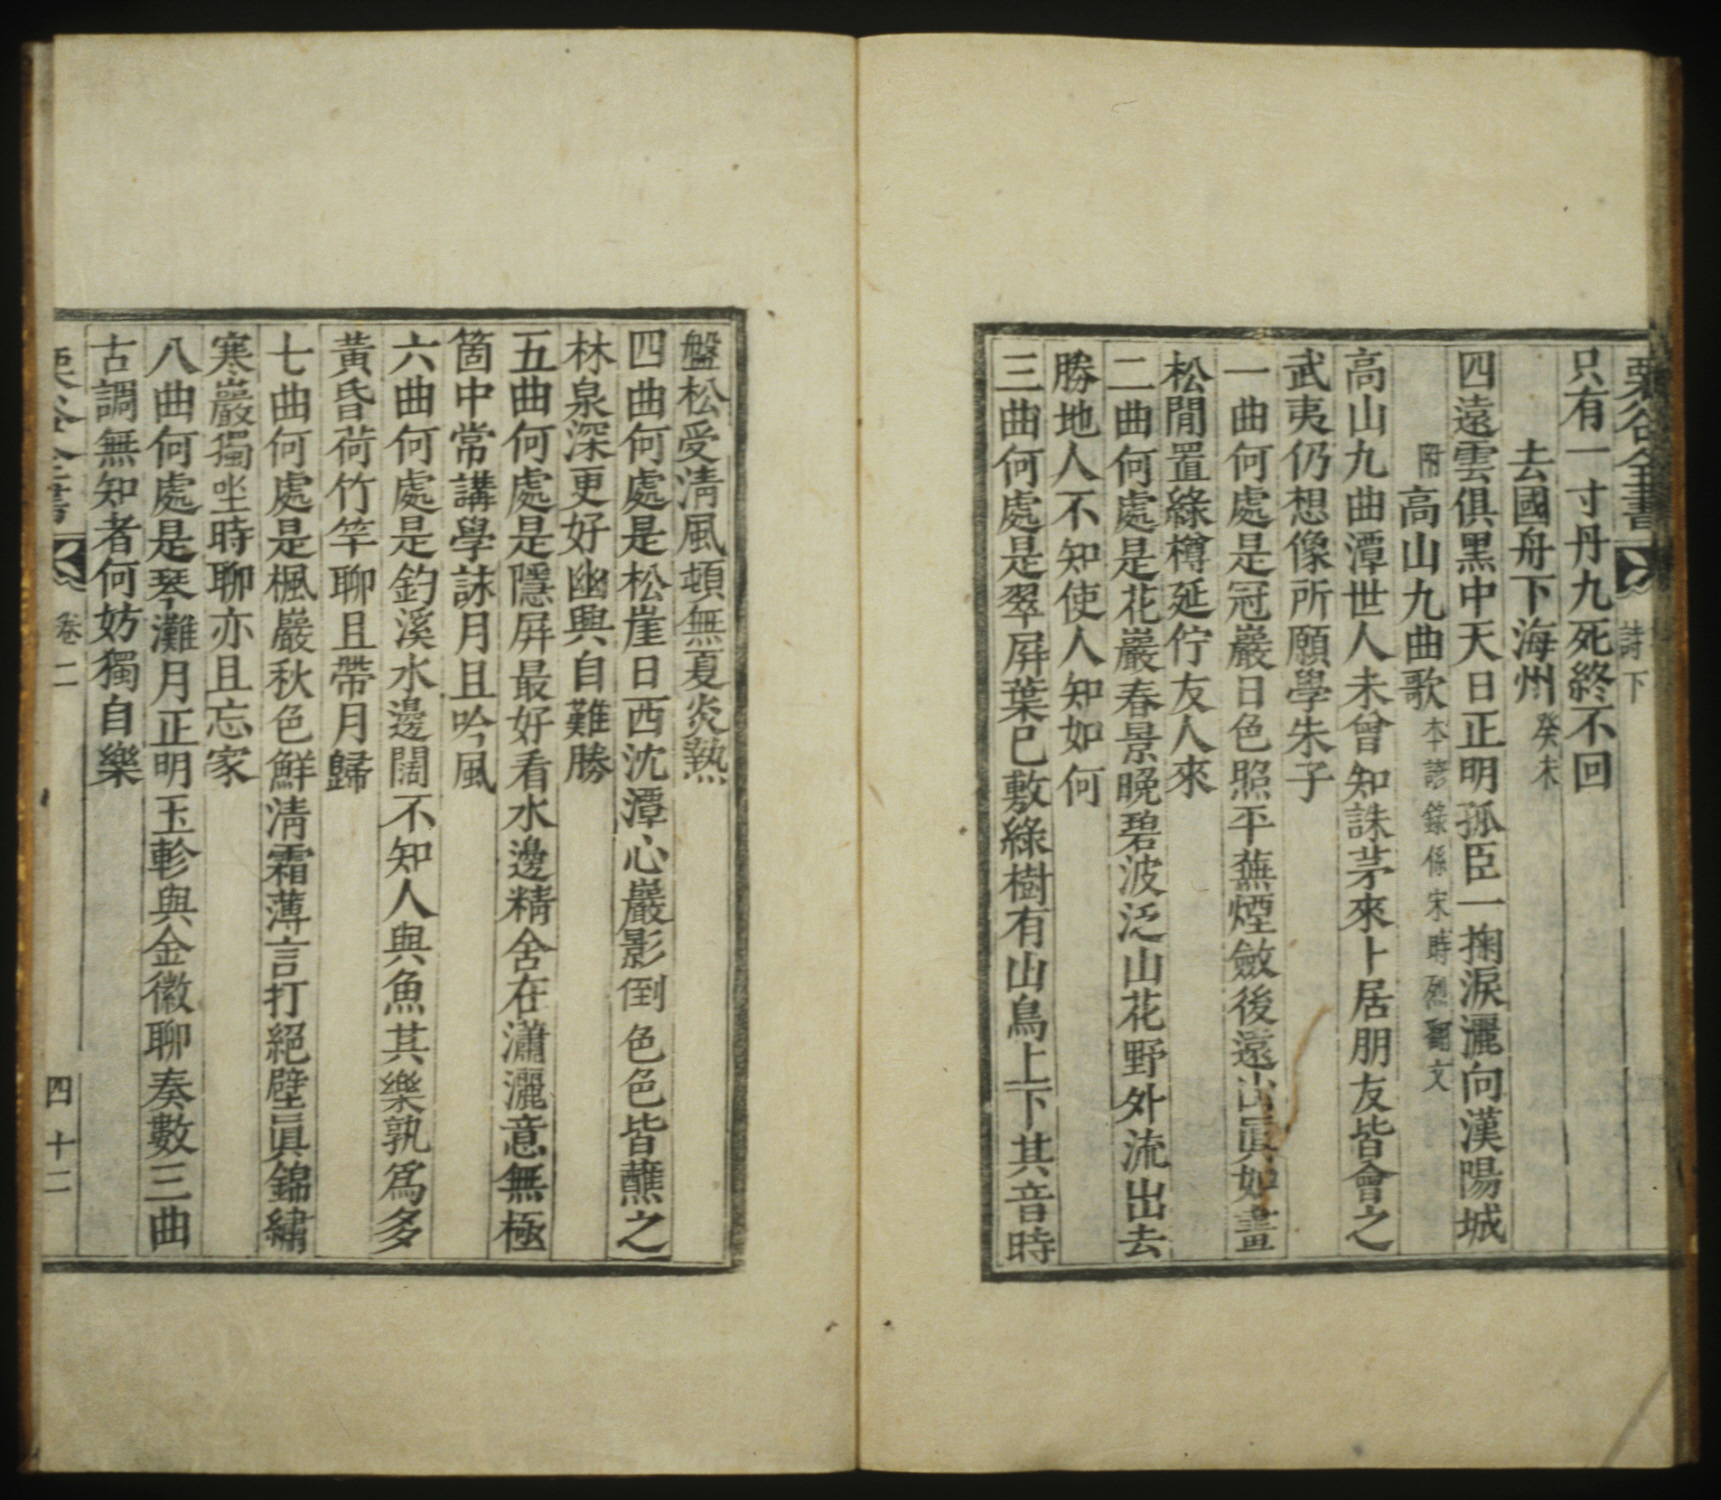 栗谷全書 詩下
只有一寸丹九死終不回
去國舟下海州 癸未
四遠雲俱黑中天日正明孤臣一掬淚灑向漢陽城
附高山九曲歌 本諺錄係宋時烈翻文
高山九曲潭世人未曾知誅茅來卜居朋友皆會之
武夷仍想像所願學朱子
一曲何處是冠巖日色照平蕪煙斂後遠山眞如畫
松閒置綠樽延佇友人來
二曲何處是花巖春景晚碧波泛山花野外流出去
勝地人不知使人知如何
三曲何處是翠屛葉已敷綠樹有山鳥上下其音時
盤松受淸風頓無夏炎熱
四曲何處是松崖日西沈潭心巖影倒色色皆蘸之
林泉深更好幽興自難勝
五曲何處是隱屛最好看水邊精舍在瀟灑意無極
箇中常講學詠月且吟風
六曲何處是釣溪水邊闊不知人與魚其樂孰爲多
黃昏荷竹竿聊且帶月歸
七曲何處是楓巖秋色鮮淸霜薄言打絕壁眞錦繡
寒巖獨坐時聊亦且忘家
八曲何處是琴灘月正明玉軫與金徽聊奏數三曲
古調無知者何妨獨自樂
栗谷全書 卷二 四十二